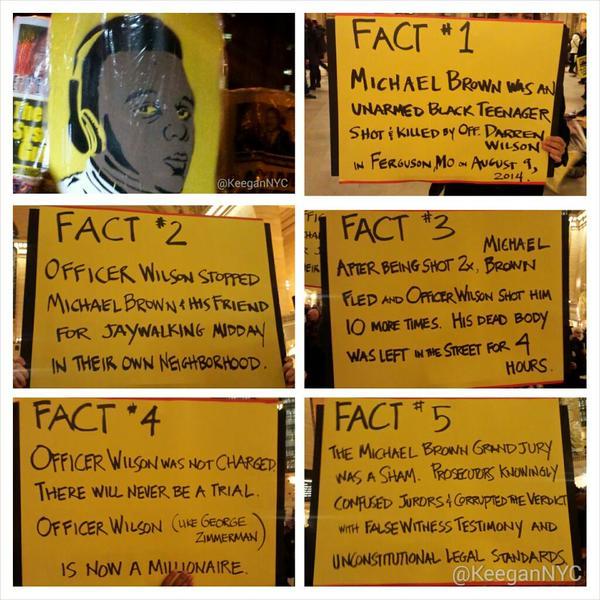 The
Sys
@KeeganNYC
FACT #1
MICHAEL BROWN WAS AN
UNARMED BLACK TEENAGER
SHOT & KILLED BY OFF. DARREN
WILSON
IN FERGUSON, MO ON AUGUST 9,
2014.
FACT #2
OFFICER WILSON STOPPED
MICHAEL BROWN & HIS FRIEND
FOR JAYWALKING MIDDAY
IN THEIR OWN NEIGHBORHOOD.
FACT #3
MICHAEL
AFTER BEING SHOT 2x, BROWN
FLED AND OFFICER WILSON SHOT HIM
10 MORE TIMES. HIS DEAD BODY
WAS LEFT IN THE STREET FOR 4
HOURS.
FACT #4
OFFICER WILSON WAS NOT CHARGED.
THERE WILL NEVER BE A TRIAL.
OFFICER WILSON (LIKE GEORGE
ZIMMERMAN)
IS NOW A MILLIONAIRE.
FACT #5
THE MICHAEL BROWN GRAND JURY
WAS A SHAM. PROSECUTORS KNOWINGLY
CONFUSED JURORS & CORRUPTED THE VERDICT
WITH FALSE WITNESS TESTIMONY AND
UNCONSTITUTIONAL LEGAL STANDARDS
@KeeganNYC